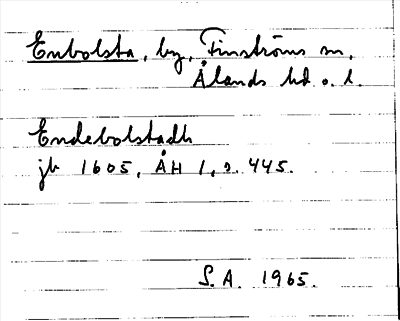 Enbolsta, by, Finströms sn,
Ålands hd o. l.
Endebolstadh
jb 1605, ÅH 1, s. 445.
S.A. 1965.